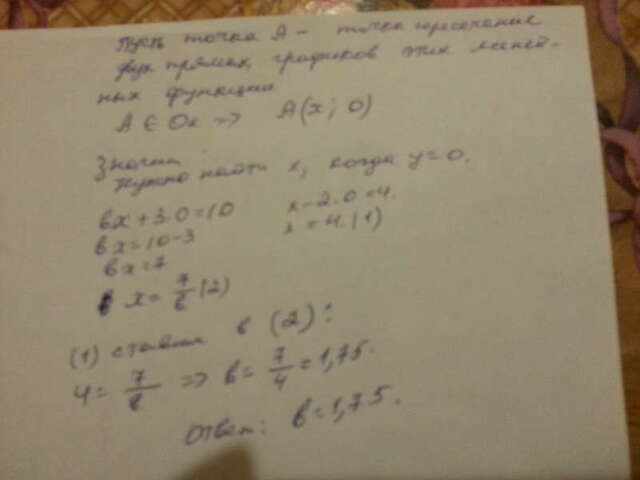 Пусть точка А - точка пересечение
двух прямых, графиков этих линей-
ных функции
A ∈ Ox => A(x; 0)
Значит
Нужно найти x, когда y=0.
bx+3·0=10
x-2·0=4.
bx=10-3
x=4. (1)
bx=7
x=7/b (2)
(1) ставим в (2):
4=7/b => b=7/4=1,75.
Ответ: b=1,75.